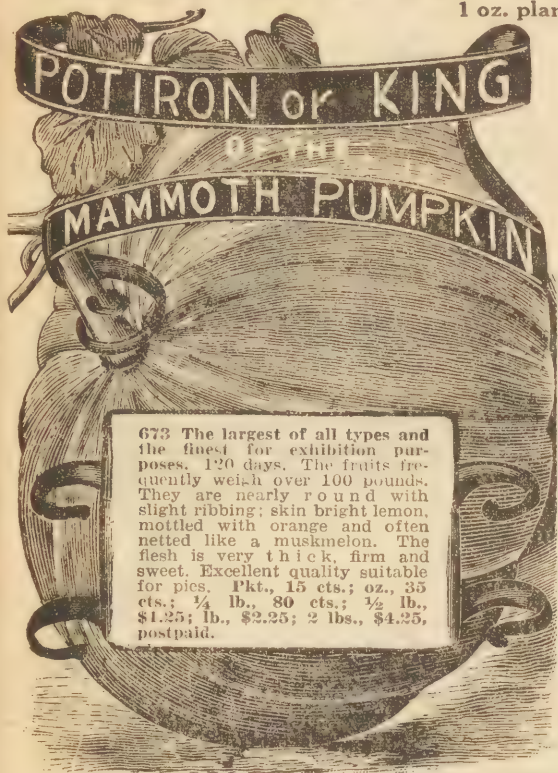 1 oz. plan
POTIRON OR KING
OF THE
MAMMOTH PUMPKIN
673 The largest of all types and
the finest for exhibition pur-
poses. 120 days. The fruits fre-
quently weigh over 100 pounds.
They are nearly round with
slight ribbing; skin bright lemon,
mottled with orange and often
netted like a muskmelon. The
flesh is very thick, firm and
sweet. Excellent quality suitable
for pies. Pkt., 15 cts.; oz., 35
cts.; ¼ lb., 80 cts.; ½ lb.,
$1.25; lb., $2.25; 2 lbs., $4.25,
postpaid.